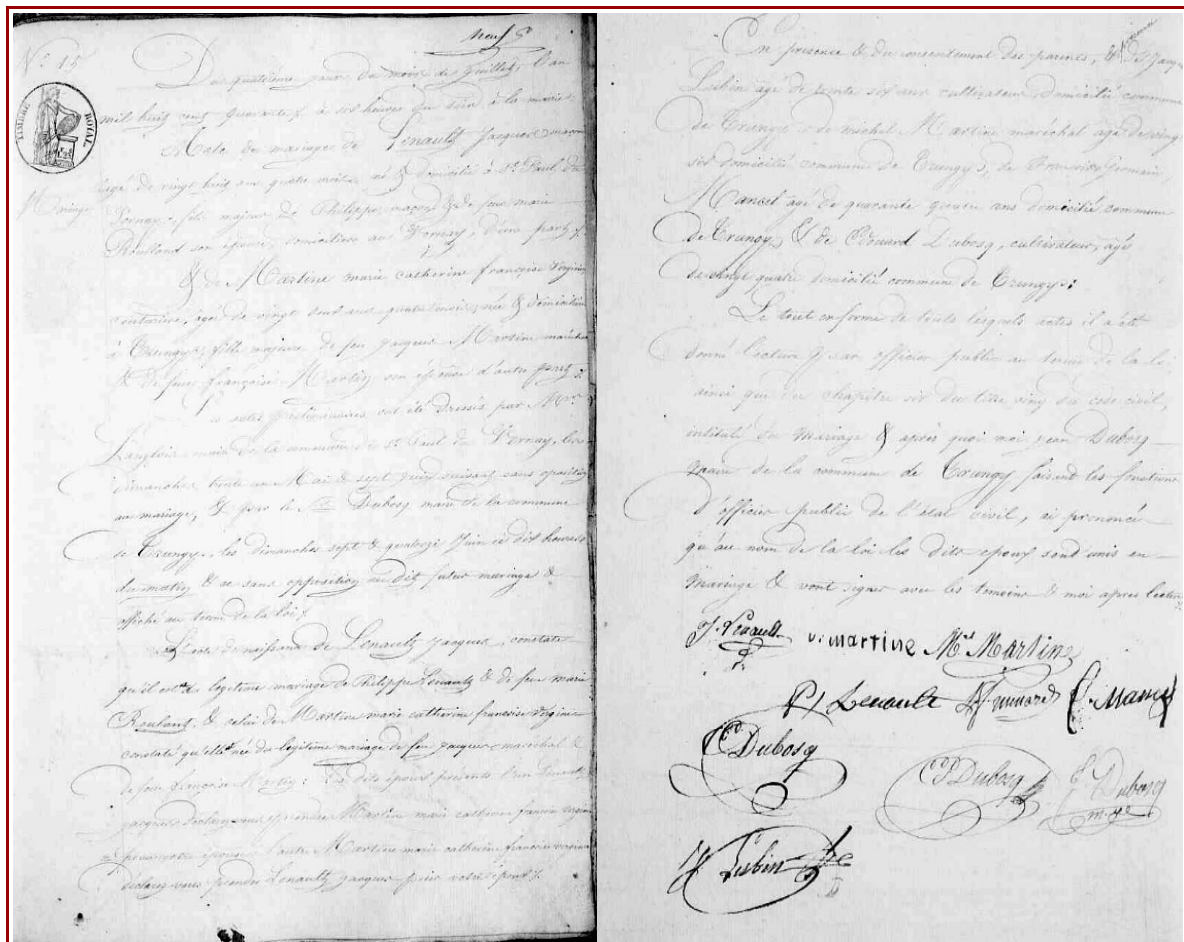 neuf
N° 15
Du quatrième jour du mois de Juillet, l'an
mil huit cent quarante, à six heures du soir à la mairie
TIMBRE ROYAL
Acte de mariage de Lenault Jacques maçon
âgé de vingt huit ans quatre mois, né & domicilié à St Paul du
Mariage
Vernay, fils majeur de Philippe, maçon & de feue marie
Roulland son épouse, domiciliés au Vernay, d'une part,
& de Martine marie catherine françoise Virginie
couturière, âgée de vingt ans quatre mois, née & domiciliée
à Trungy, fille majeure de feu Jacques Martine maréchal
& de feue françoise Martin son épouse d'autre part;
actes préliminaires ont été dressés par Mr
Langlois maire de la commune de St Paul du Vernay, les
dimanches trente un Mai & sept Juin suivant sans opposition
au mariage, & par le Dubosq maire de la commune
de Trungy, les dimanches sept & quatorze Juin à dix heures
du matin & ce sans opposition au dit futur mariage &
affiché au terme de la loi,
L'acte de naissance de Lenault Jacques, constate
qu'il est du légitime mariage de Philippe Lenault & de feue marie
Roulant, & celui de Martine marie catherine francoise Virginie
constate qu'elle née du légitime mariage de feu Jacques maréchal &
de feue françoise Martin: Les dits époux présents l'un Lenault
jacques déclarez vous prendre Martine marie catherine francoise Virginie
pour votre épouse l'autre Martine marie catherine francoise Virginie
déclarez vous prendre Lenault Jacques pour votre époux,
En présence & du consentement des parents, & de Jacques
Lubin âgé de trente six ans cultivateur domicilié commune
de Trungy, de michel Martine maréchal âgé de vingt
six domicilié commune de Trungy, de François Germain
Mancel âgé de quarante quatre ans domicilié commune
de Trungy, & de Edouard Dubosq, cultivateur, âgé
de vingt quatre domicilié commune de Trungy:
Le tout en forme de tous lesquels actes il a été
donné lecture par officier public au terme de la loi
ainsi que du chapitre six du titre cinq du code civil,
intitulé du Mariage & après quoi moi Jean Dubosq
maire de la commune de Trungy faisant les fonctions
d'officier public de l'état civil, ai prononcé
qu'au nom de la loi les dits époux sont unis en
mariage & vont signer avec les témoins & moi après lecture
J. Lenault v. martine Mel Martine
Ph Lenault
Ed Dubosq
Dubosq Dubosq
J. Lubin